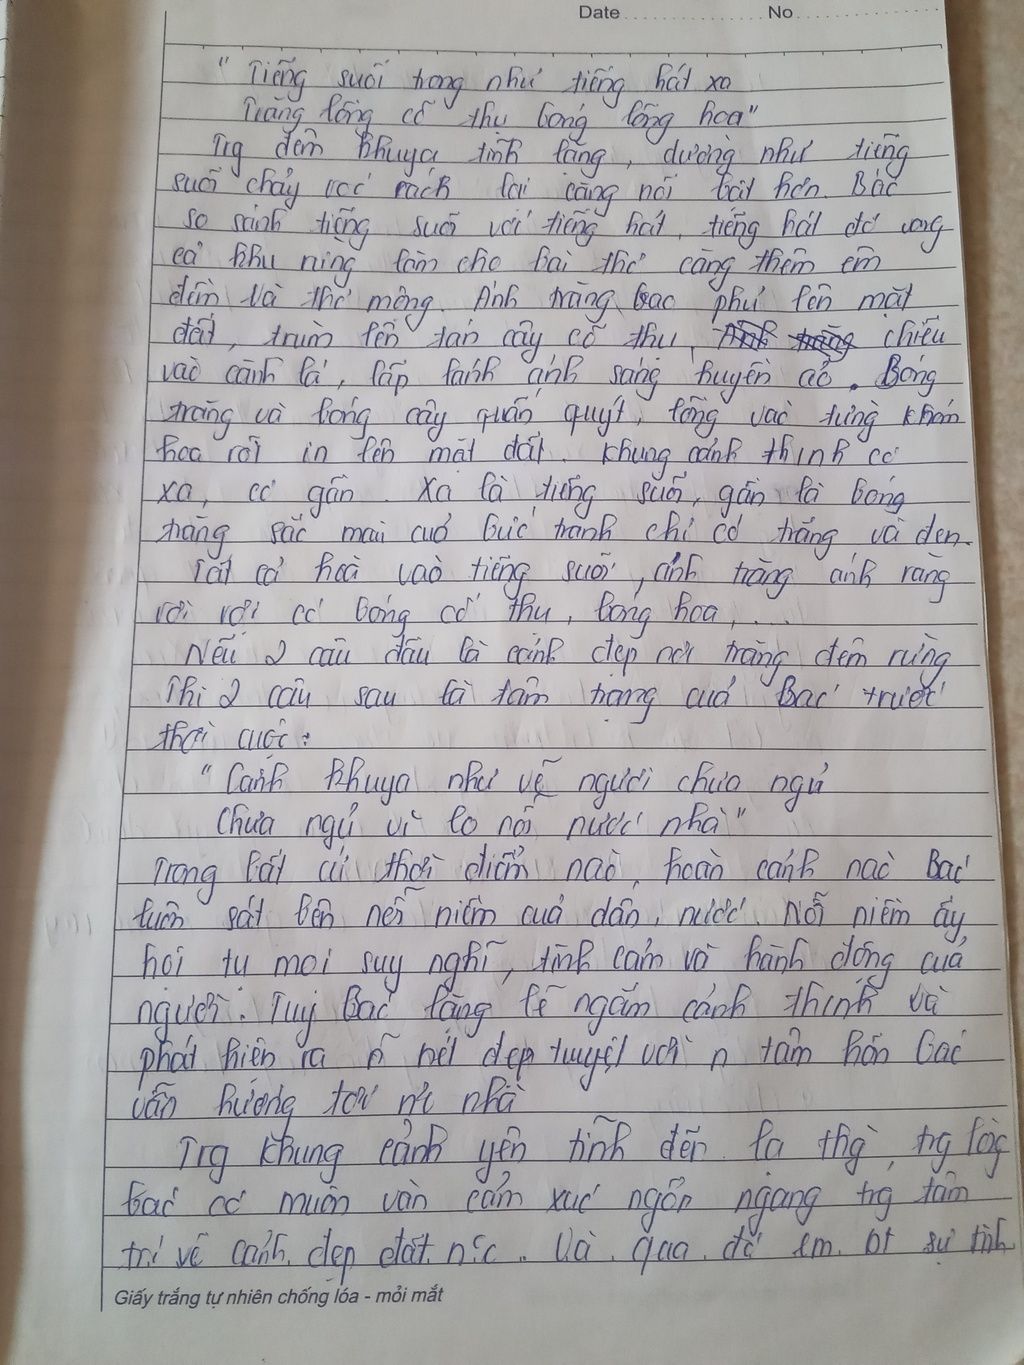 Date No
"Tiếng suối trong như tiếng hát xa
Trăng lồng cổ thụ bóng lồng hoa"
Trg đêm khuya tĩnh lặng, dường như tiếng
suối chảy róc rách lại càng nổi bật hơn. Bác
so sánh tiếng suối với tiếng hát, tiếng hát đó vang
cả khu rừng làm cho bài thơ càng thêm êm
đềm và thơ mộng. Ánh trăng bạc phủ lên mặt
đất, trùm lên tán cây cổ thụ, chiếu
vào cành lá, lấp lánh ánh sáng huyền ảo. Bóng
trăng và bóng cây quấn quýt, lồng vào từng khóm
hoa rồi in lên mặt đất. Khung cảnh thinh có
xa, có gần. Xa là tiếng suối, gần là bóng
trăng sắc màu của bức tranh chỉ có trắng và đen.
Tất cả hoà vào tiếng suối, ánh trăng ánh rằng
rời rợi có bóng cổ thụ, bóng hoa,...
Nếu 2 câu đầu là cảnh đẹp nơi trăng đêm rừng
Thì 2 câu sau là tâm trạng của Bác trước
thời cuộc:
"Cảnh khuya như vẽ người chưa ngủ
Chưa ngủ vì lo nỗi nước nhà"
Trong bất cứ thời điểm nào, hoàn cảnh nào Bác
luôn sát bên nỗi niềm của dân, nước. Nỗi niềm ấy
hội tụ mọi suy nghĩ, tình cảm và hành động của
người. Tuy Bác lặng lẽ ngắm cảnh thinh và
phát hiện ra n nét đẹp tuyệt vời n tâm hồn bác
vẫn hướng tới nc nhà
Trg khung cảnh yên tĩnh đến lạ thg, trg lòg
bác có muôn vàn cảm xúc ngổn ngang trg tâm
trí về cảnh đẹp đất nc. Và qua đó em bt sự tình
Giấy trắng tự nhiên chống lóa - mỏi mắt